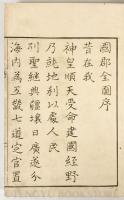 國郡全圖序
昔在我
神皇順天受命建國經野
乃就地利以處人民
列聖經興疆壤日廣遂分
海内爲五畿七道定官置